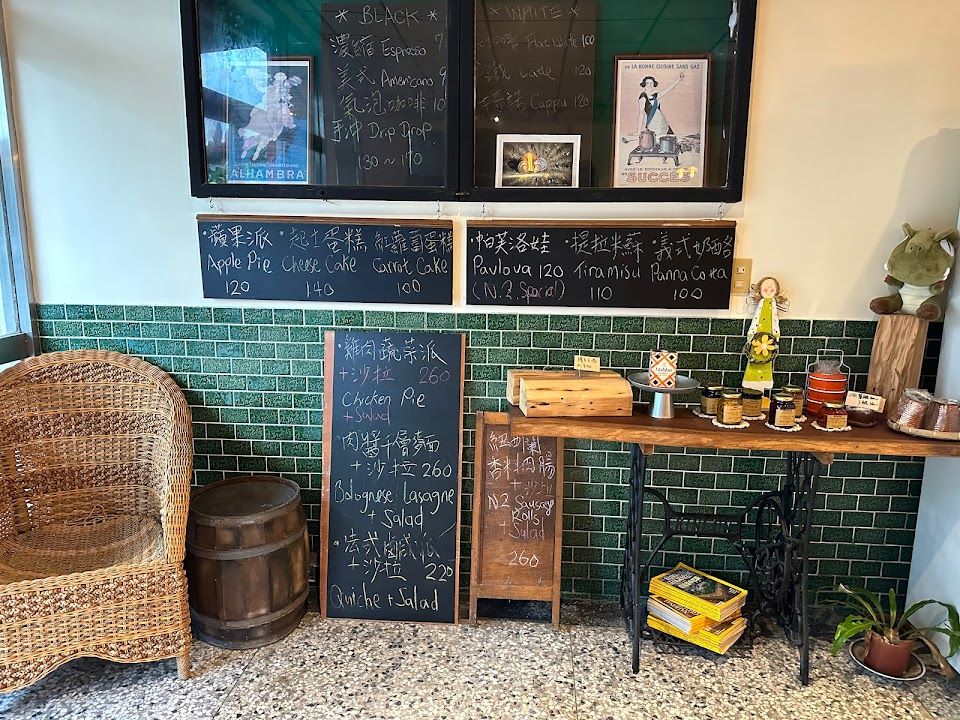 * BLACK *
濃縮 Espresso 7
美式 Americano 9
氣泡咖啡 10
手沖 Drip Drop
130~170
* WHITE *
Flat White 100
Latte 120
Cappu 120
ALHAMBRA
LA BONNE CUISINE SANS GAZ
SUCCÈS
·蘋果派
Apple Pie
120
·起士蛋糕
Cheese Cake
140
紅蘿蔔蛋糕
Carrot Cake
100
·帕芙洛娃
Pavlova 120
(N.Z Special)
·提拉米蘇
Tiramisu
110
·義式奶酪
Panna Cotta
100
·雞肉蔬菜派
+沙拉 260
Chicken Pie
+Salad
·肉醬千層麵
+沙拉 260
Bolognese Lasagne
+Salad
·法式鹹派
+沙拉 220
Quiche + Salad
紐西蘭
香料肉腸
+沙拉
N.Z Sausage
Rolls
+Salad
260